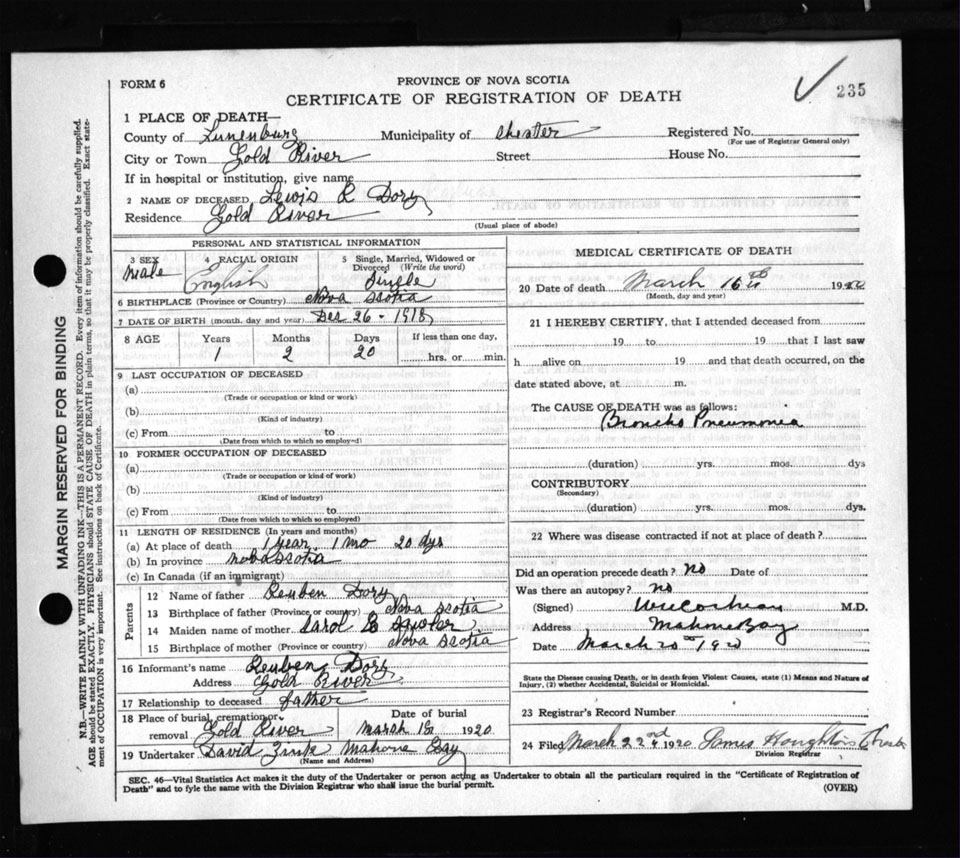 235
FORM 6
PROVINCE OF NOVA SCOTIA
CERTIFICATE OF REGISTRATION OF DEATH
1 PLACE OF DEATH—
County of Lunenburg Municipality of Chester Registered No.
(For use of Registrar General only)
City or Town Gold River Street House No.
If in hospital or institution, give name
2 NAME OF DECEASED Lewis R Dory
Residence Gold River
(Usual place of abode)
PERSONAL AND STATISTICAL INFORMATION
3 SEX 4 RACIAL ORIGIN 5 Single, Married, Widowed or
Divorced (Write the word)
Male English Single
6 BIRTHPLACE (Province or Country) Nova Scotia
7 DATE OF BIRTH (month, day and year) Dec 26 - 1918
8 AGE Years Months Days If less than one day,
1 2 20 hrs. or min.
9 LAST OCCUPATION OF DECEASED
(a)
(Trade or occupation or kind or work)
(b)
(Kind of industry)
(c) From to
(Date from which to which so employed)
10 FORMER OCCUPATION OF DECEASED
(a)
(Trade or occupation or kind or work)
(b)
(Kind of industry)
(c) From to
(Date from which to which so employed)
11 LENGTH OF RESIDENCE (In years and months)
(a) At place of death 1 year 1 mo 20 dys
(b) In province Nova Scotia
(c) In Canada (if an immigrant)
Parents
12 Name of father Reuben Dory
13 Birthplace of father (Province or country) Nova Scotia
14 Maiden name of mother
15 Birthplace of mother (Province or country) Nova Scotia
16 Informant's name Reuben Dory
Address Gold River
17 Relationship to deceased father
18 Place of burial, cremation or Date of burial
removal Gold River March 18 1920
19 Undertaker David Zink Mahone Bay
(Name and Address)
MEDICAL CERTIFICATE OF DEATH
20 Date of death March 16th 19
(Month, day and year)
21 I HEREBY CERTIFY, that I attended deceased from
19 to 19 that I last saw
h alive on 19 and that death occurred, on the
date stated above, at m.
The CAUSE OF DEATH was as follows:
Broncho Pneumonia
(duration) yrs. mos. dys
CONTRIBUTORY
(Secondary)
(duration) yrs. mos. dys.
22 Where was disease contracted if not at place of death?
Did an operation precede death? No Date of
Was there an autopsy? No
(Signed) M.D.
Address Mahone Bay
Date March 20th 1920
State the Disease causing Death, or in death from Violent Causes, state (1) Means and Nature of
Injury, (2) whether Accidental, Suicidal or Homicidal.
23 Registrar's Record Number
24 Filed March 22nd 1920 James Houghton Chester
Division Registrar
SEC. 46—Vital Statistics Act makes it the duty of the Undertaker or person acting as Undertaker to obtain all the particulars required in the "Certificate of Registration of
Death" and to fyle the same with the Division Registrar who shall issue the burial permit.
(OVER)
MARGIN RESERVED FOR BINDING
N.B.—WRITE PLAINLY WITH UNFADING INK—THIS IS A PERMANENT RECORD. Every item of information should be carefully supplied.
AGE should be stated EXACTLY. PHYSICIANS should STATE CAUSE OF DEATH in plain terms, so that it may be properly classified. Exact state-
ment of OCCUPATION is very important. See instructions on back of Certificate.